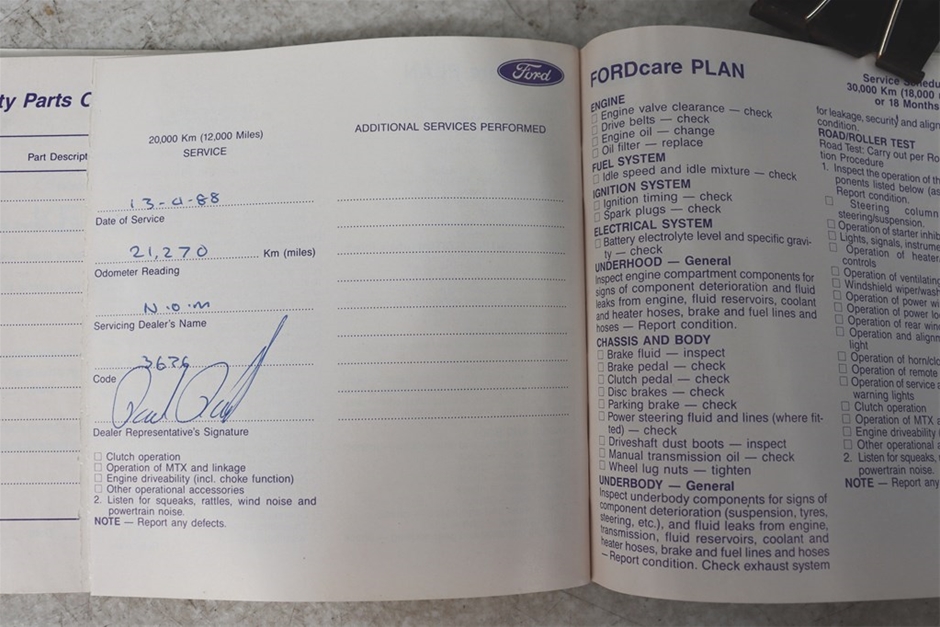 ty Parts C
Part Descript
20,000 Km (12,000 Miles)
SERVICE
13-4-88
Date of Service
21,270 Km (miles)
Odometer Reading
N.O.M
Servicing Dealer's Name
3636
Code
Dealer Representative's Signature
□ Clutch operation
□ Operation of MTX and linkage
□ Engine driveability (incl. choke function)
□ Other operational accessories
2. Listen for squeaks, rattles, wind noise and
powertrain noise.
NOTE — Report any defects.
Ford
ADDITIONAL SERVICES PERFORMED
FORDcare PLAN
ENGINE
□ Engine valve clearance — check
□ Drive belts — check
□ Engine oil — change
□ Oil filter — replace
FUEL SYSTEM
□ Idle speed and idle mixture — check
IGNITION SYSTEM
□ Ignition timing — check
□ Spark plugs — check
ELECTRICAL SYSTEM
□ Battery electrolyte level and specific gravi-
ty — check
UNDERHOOD — General
Inspect engine compartment components for
signs of component deterioration and fluid
leaks from engine, fluid reservoirs, coolant
and heater hoses, brake and fuel lines and
hoses — Report condition.
CHASSIS AND BODY
□ Brake fluid — inspect
□ Brake pedal — check
□ Clutch pedal — check
□ Disc brakes — check
□ Parking brake — check
□ Power steering fluid and lines (where fit-
ted) — check
□ Driveshaft dust boots — inspect
□ Manual transmission oil — check
□ Wheel lug nuts — tighten
UNDERBODY — General
Inspect underbody components for signs of
component deterioration (suspension, tyres,
steering, etc.), and fluid leaks from engine,
transmission, fluid reservoirs, coolant and
heater hoses, brake and fuel lines and hoses
— Report condition. Check exhaust system
Service Schedu
30,000 Km (18,000
or 18 Months
for leakage, security and alignm
condition.
ROAD/ROLLER TEST
Road Test: Carry out per Ro
tion Procedure
1. Inspect the operation of th
ponents listed below (as
Report condition.
□ Steering column
steering/suspension.
□ Operation of starter inhib
□ Lights, signals, instrume
□ Operation of heater
controls
□ Operation of ventilating
□ Windshield wiper/wash
□ Operation of power wi
□ Operation of power lo
□ Operation of rear wind
□ Operation and alignm
light
□ Operation of horn/clo
□ Operation of remote
□ Operation of service a
warning lights
□ Clutch operation
□ Operation of MTX a
□ Engine driveability
□ Other operational a
2. Listen for squeaks,
powertrain noise.
NOTE — Report any